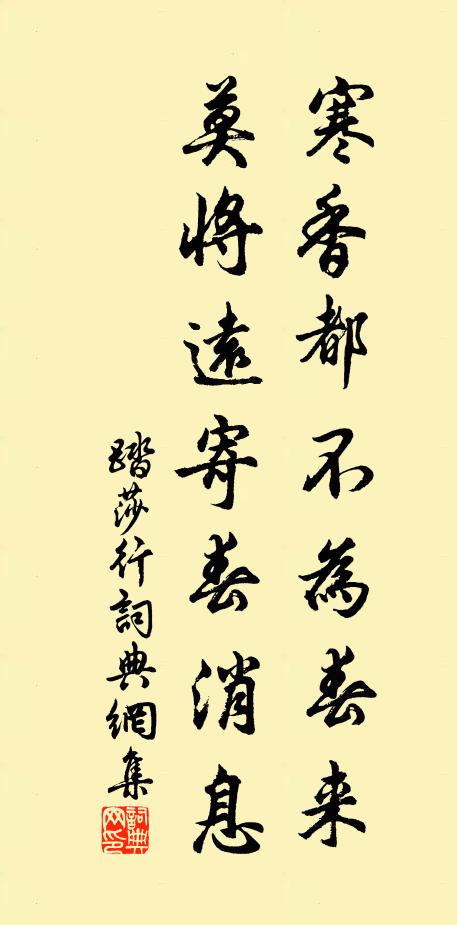 寒香都不為春来
莫將遠寄春消息
踏莎行詞典網集
詞典网印